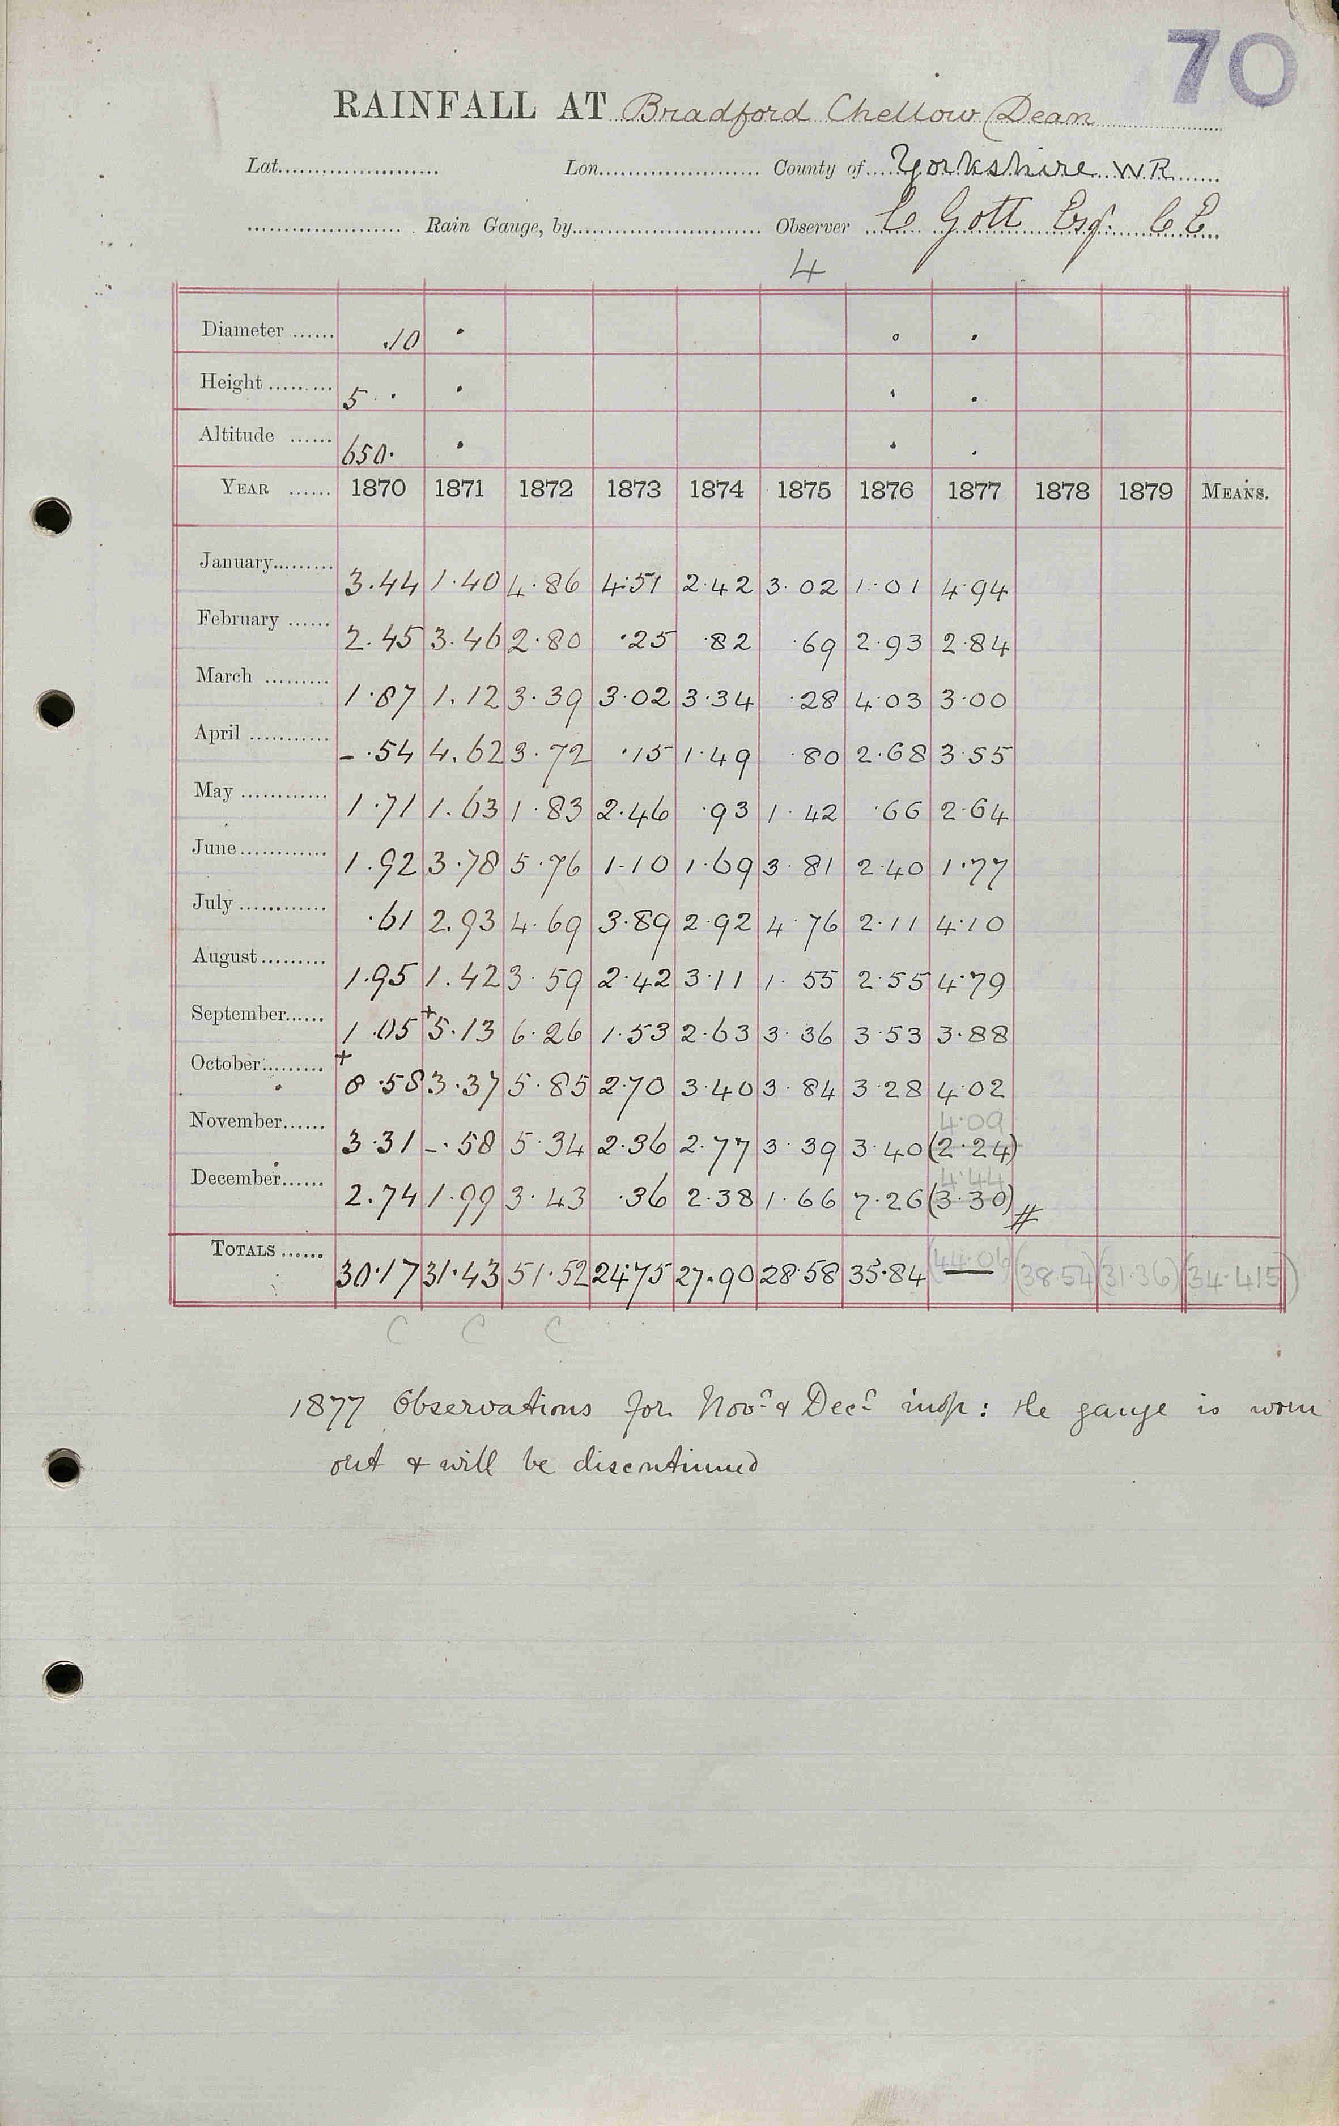 70
RAINFALL AT Bradford Chellow Dean
Lat. Lon. County of Yorkshire WR
Rain Gauge, by Observer C Gott Esq. C E
4
Diameter 10
Height 5
Altitude 650
YEAR 1870 1871 1872 1873 1874 1875 1876 1877 1878 1879 MEANS.
January 3.44 1.40 4.86 4.51 2.42 3.02 1.01 4.94
February 2.45 3.46 2.80 .25 .82 .69 2.93 2.84
March 1.87 1.12 3.39 3.02 3.34 .28 4.03 3.00
April -.54 4.62 3.72 .15 1.49 .80 2.68 3.55
May 1.71 1.63 1.83 2.46 .93 1.42 .66 2.64
June 1.92 3.78 5.76 1.10 1.69 3.81 2.40 1.77
July .61 2.93 4.69 3.89 2.92 4.76 2.11 4.10
August 1.95 1.42 3.59 2.42 3.11 1.55 2.55 4.79
September 1.05 +5.13 6.26 1.53 2.63 3.36 3.53 3.88
October +8.58 3.37 5.85 2.70 3.40 3.84 3.28 4.02
4.09
November 3.31 -.58 5.34 2.36 2.77 3.39 3.40 (2.24)
4.44
December 2.74 1.99 3.43 .36 2.38 1.66 7.26 (3.30) #
TOTALS 30.17 31.43 51.52 24.75 27.90 28.58 35.84 (44.06) — (38.54) (31.36) (34.415)
C C C
1877 Observations for Novr & Decr insp: the gauge is worn
out & will be discontinued